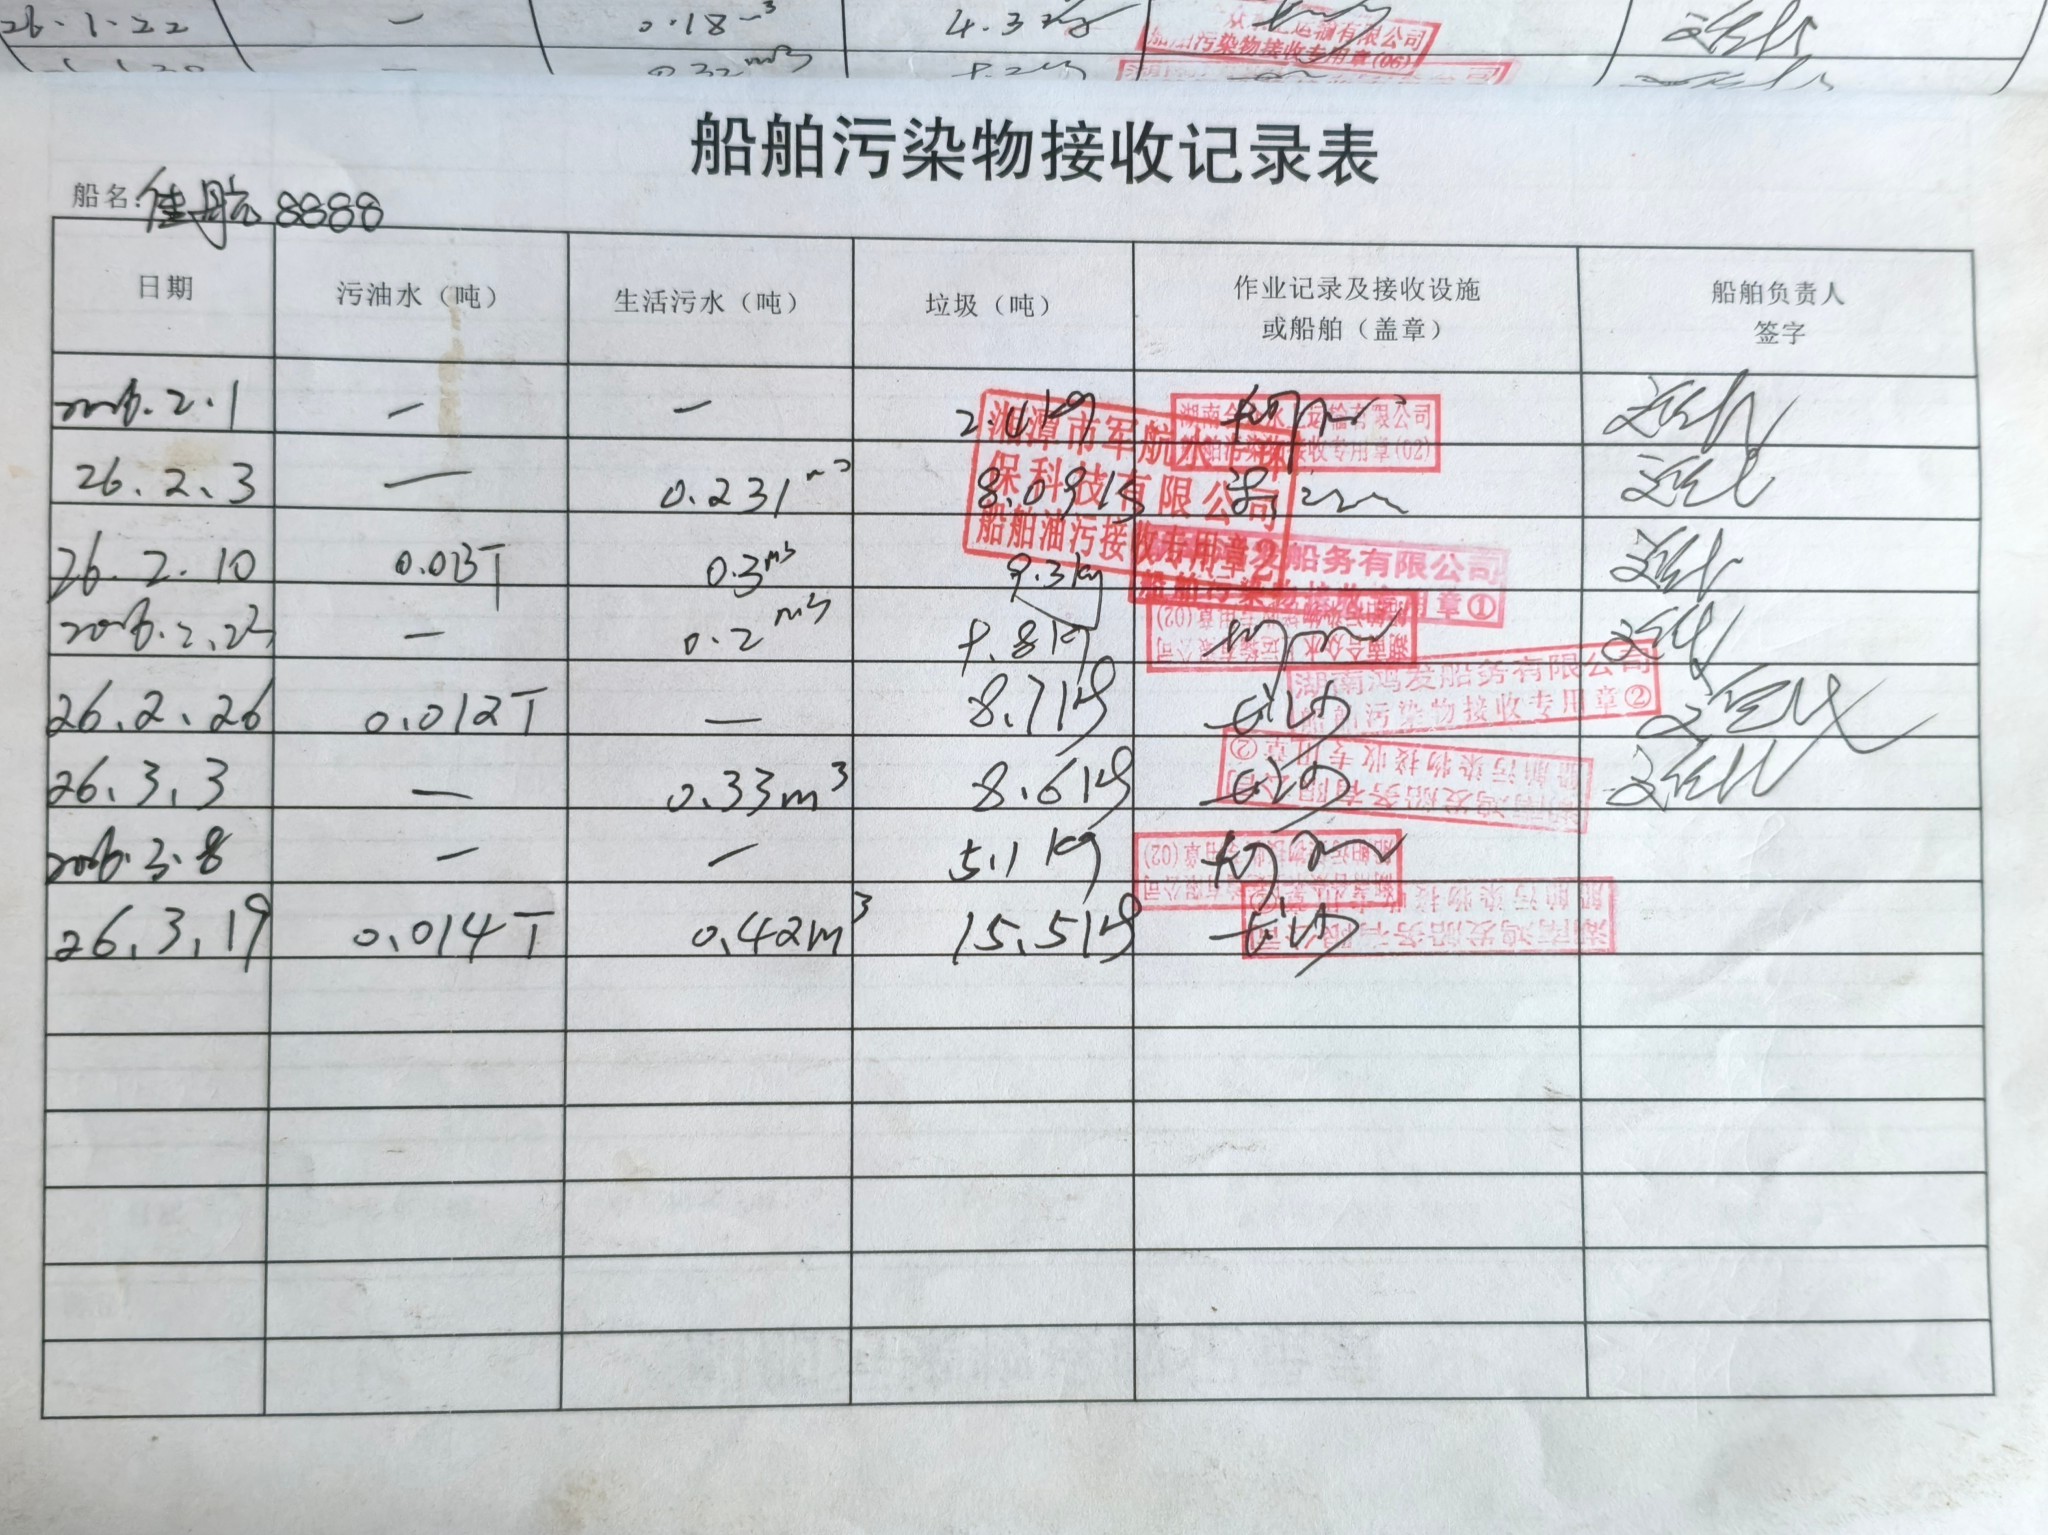 26.1.22 — 0.18m³ 4.3kg
运输有限公司
船舶污染物接收专用章(06)
船舶污染物接收记录表
船名:佳航8888
日期 污油水（吨） 生活污水（吨） 垃圾（吨） 作业记录及接收设施 船舶负责人
或船舶（盖章） 签字
2026.2.1 — — 2.4kg
湖南合众水上运输有限公司
船舶污染物接收专用章(02)
湘潭市军航水上环
保科技有限公司
船舶油污接收专用章2
26.2.3 — 0.231m³ 8.09kg
26.2.10 0.013T 0.3m³ 9.3kg
船务有限公司
船舶污染物接收专用章①
2026.2.23 — 0.2m³ 9.8kg
湖南合众水上运输有限公司
船舶污染物接收专用章(02)
26.2.26 0.012T — 8.7kg 长沙
湖南鸿发船务有限公司
船舶污染物接收专用章②
26.3.3 — 0.33m³ 8.6kg 长沙
湖南鸿发船务有限公司
船舶污染物接收专用章②
2026.3.8 — — 5.1kg
湖南合众水上运输有限公司
船舶污染物接收专用章(02)
26.3.19 0.014T 0.42m³ 15.5kg 长沙
湖南鸿发船务有限公司
船舶污染物接收专用章②